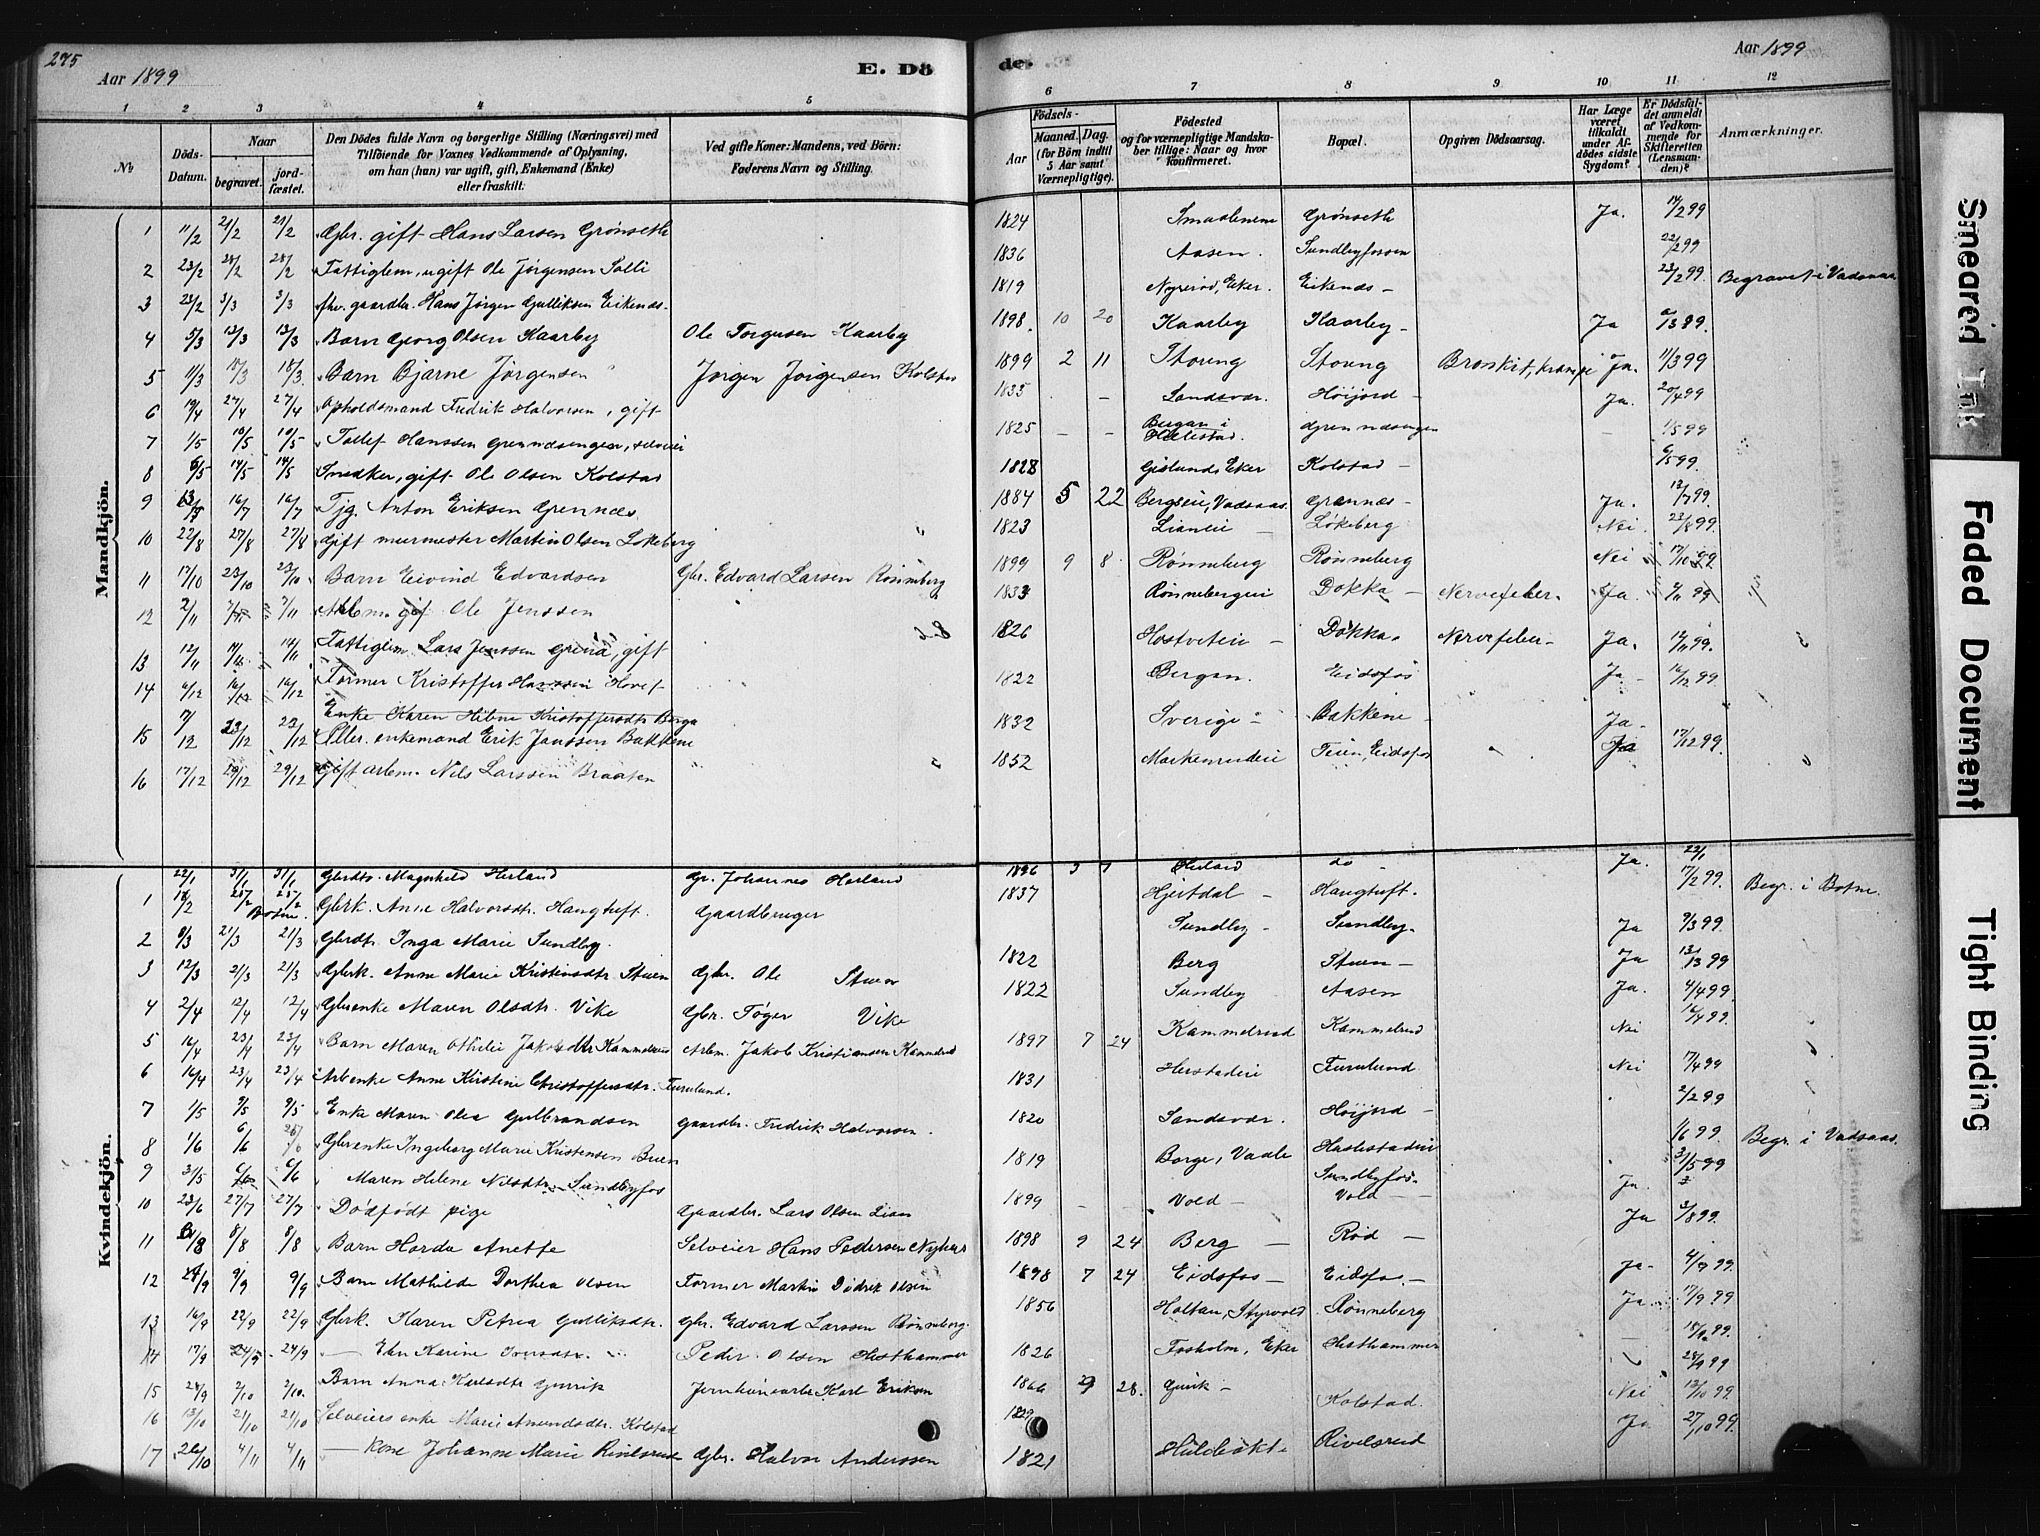 275
Aar 1899
E. Dö
de.
Aar 1899
1 2 3 4 5 6 7 8 9 10 11 12
No
Döds-Datum.
Naar
begravet.
jord-fæstet.
Den Dödes fulde Navn og borgerlige Stilling (Næringsvei) med
Tilföiende for Voxnes Vedkommende af Oplysning,
om han (hun) var ugift, gift, Enkemand (Enke)
eller fraskilt.
Ved gifte Koner: Mandens, ved Börn:
Faderens Navn og Stilling.
Födsels-
Aar
Maaned. Dag.
(for Börn indtil
5 Aar samt
Værnepligtige).
Födested
og for værnepligtige Mandska-
ber tillige: Naar og hvor
konfirmeret.
Bopæl.
Opgiven Dödsaarsag.
Har Læge
været
tilkaldt
under Af-
dödes sidste
Sygdom?
Er Dödsfal-
det anmeldt
af Vedkom-
mende for
Skifteretten
(Lensman-
den)?
Anmærkninger.
Mandkjön.
1 11/2 21/2 21/2 Gbr. gift Hans Larsen Grønseth 1824 Smaalenene Grønseth Ja. 14/2 99
2 23/2 28/2 28/2 Fattiglem, ugift Ole Jørgensen Solli 1836 Aasen. Sundbyfossen 22/2 99
3 23/2 3/3 3/3 fhv. gaardbr. Hans Jørgen Gulliksen Eikenes. 1819 Eker. Eikenes - 23/2 99. Begravet i Vadsaas
4 5/3 13/3 13/3 Barn Georg Olsen Kaarby Ole Torgersen Kaarby 1898 10 20 Kaarby Kaarby - Ja
5 11/3 18/3 18/3. Barn Bjarne Jørgensen Jørgen Jørgensen Kolstad 1899 2 11 Storeng Storeng Bronkit, krampe Ja. 11/3 99
6 19/4 27/4 27/4 Opholdsmand Fredrik Halvorsen, gift 1835 Sandsvær. Høijord - Ja. 20/4 99
7 1/5 10/5 10/5 Tollef Hanssen Grenndsengen, selveier 1825 - - Bergan i Hillestad. Grenndsengen 1/5 99
8 6/5 14/5 14/5 Snedker, gift Ole Olsen Kolstad 1828 Eker Kolstad - 6/5 99.
9 16/7 16/7 Tjg. Anton Eriksen Grennes 1884 5 22 Vadsaas. Grennes - Ja. 12/7 99.
10 22/8 27/8 27/8 Gift murmester Martin Olsen Løkeberg 1823 Lianeie - Løkeberg Nei 23/8 99.
11 17/10 23/10 23/10 Barn Eivind Edvardsen Gbr. Edvard Larsen Rønneberg 1899 9 8 Rønneberg Rønneberg Nei 17/10 99
12 2/11 7/11 7/11 Arbm. gif Ole Jenssen 1833 Rønnebergeie Dokka - Nervefeber. Ja.
13 12/11 14/11 Fattiglem Lars Jenssen Grena, gift 1826 Hostveteie - Dokka. Nervefeber - Ja. 14/11 99.
14 6/12 16/12 16/12 Former Kristoffer Hanssen Hovet 1822 Bergan. Eidsfos Ja - 16/12 99
Enke Karen Helene Kristoffersdtr Berga
15 7/12 23/12 23/12 Pller. enkemand Erik Janssen Bakkene 1832 Sverige - Bakkene - Ja -
16 17/12 29/12 29/12 Gift arbm. Nils Larssen Braaten 1852 Markerudeie Teien, Eidsfos Ja 17/12 99.
Kvindekjön.
22/1 31/1 31/1 Gbrdtr. Magnhild Herland Gr. Johannes Herland 1896 3 7 Herland do - Ja. 22/1
1 25/2 25/2 Botne. Gbrk. Anne Halvorsdtr. Haugtuft. Gaardbruger 1837 Hjertdal - Haugtuft. 17/2 99. Begr. i Botne.
2 9/3 21/3 21/3 Gbrdtr. Inga Marie Sundby. Sundby - Sundby. Ja 9/3 99.
3 12/3 21/3 21/3 Gbrk. Anne Marie Kristiansdtr. Stuen Gbr. Ole Stuen 1822 Berg Stuen - Ja 13/3 99
4 2/4 12/4 12/4 Gbrenke Maren Olsdtr. Vike Gbr. Tøger Vike 1822 Sundby Aasen Ja. 4/4 99.
5 16/4 23/4 23/4 Barn Maren Othilie Jakobsdtr Kammelrud Arbm. Jakob Kristiansen Kammelrud 1897 7 24 Kammelrud Kammelrud Nei 16/4 99.
6 16/4 23/4 23/4 Arb. enke Anne Kirstine Christoffersdtr. Furulund. 1831 Herstadeie Furulund Nei 17/4 99
7 1/5 9/5 9/5 Enke Maren Olea Gulbrandsen Gaardbr. Fredrik Halvorsen. 1820 Sandsvær. Høijord - 2/2 99
8 1/6 6/6 Gbrenke Ingeborg Marie Kristensen Bruen 1819 Borge, Vaale 1/6 99. Begr. i Vadsaas.
9 31/5 6/6 Maren Helene Nilsdtr. Sundbyfos Sundbyfos. Ja. 31/5 99
10 23/6 27/7 27/7 Dødfødt pige Gaardbr. Lars Olsen Lian 1899 - Vold - Vold -
11 8/8 8/8 Barn Horda Anette Selveier Hans Pedersen Nyhus 1898 9 24 Berg - Rød - Ja 3/8 99.
12 9/9 9/9 Barn Mathilde Dorthea Olsen Former Martin Didrik Olsen 1898 7 24 Eidsfos - Eidsfos. - Ja -
13 16/9 22/9 22/9 Gbrk. Karen Petrea Gulliksdtr. Gbr. Edvard Larssen Rønneberg. 1856 Holtan, Styrvold Rønneberg Ja. 17/9 99
14 17/9 24/9 24/9 - Karine Iversdtr. Peder Olsen Hesthammer 1826 Fosholm, Eker Hesthammer - 18/9 99.
15 28/9 2/10 2/10. Barn Anna Karlsdtr Gunrik Karl Eriksen 9 28. - 28/9 99
16 13/10 21/10 21/10 Selveiers enke Marie Amundsdtr. Kolstad Kolstad. Nei 13/10 99.
17 26/10 4/11 4/11 - kone Johanne Marie Rivelsrud Gbr. Halvor Anderssen 1821 Rivelsrud Ja 27/10 99.
Smeared Ink
Faded Document
Tight Binding